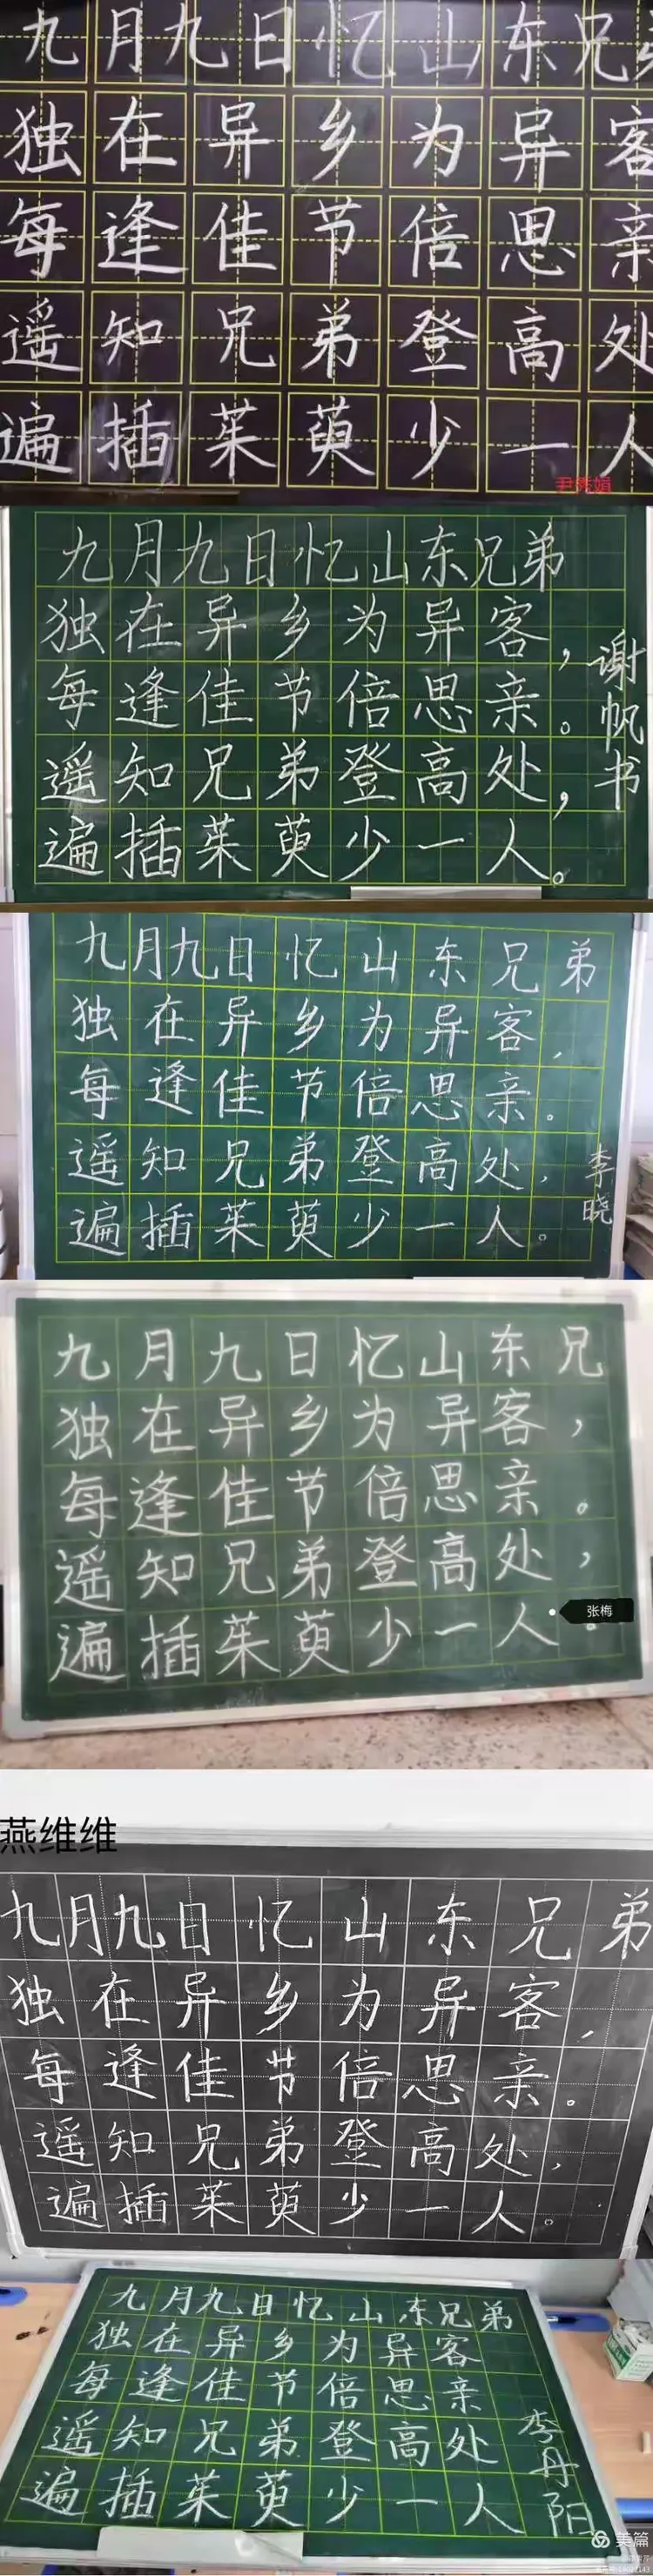 九月九日忆山东兄弟
独在异乡为异客
每逢佳节倍思亲
遥知兄弟登高处
遍插茱萸少一人
尹秀娟
九月九日忆山东兄弟
独在异乡为异客，
每逢佳节倍思亲。
遥知兄弟登高处，
遍插茱萸少一人。
谢帆书
九月九日忆山东兄弟
独在异乡为异客，
每逢佳节倍思亲。
遥知兄弟登高处，
遍插茱萸少一人。
李晓
九月九日忆山东兄
独在异乡为异客，
每逢佳节倍思亲。
遥知兄弟登高处，
遍插茱萸少一人。
张梅
燕维维
九月九日忆山东兄弟
独在异乡为异客，
每逢佳节倍思亲。
遥知兄弟登高处，
遍插茱萸少一人。
九月九日忆山东兄弟
独在异乡为异客
每逢佳节倍思亲
遥知兄弟登高处
遍插茱萸少一人
李丹阳
美篇